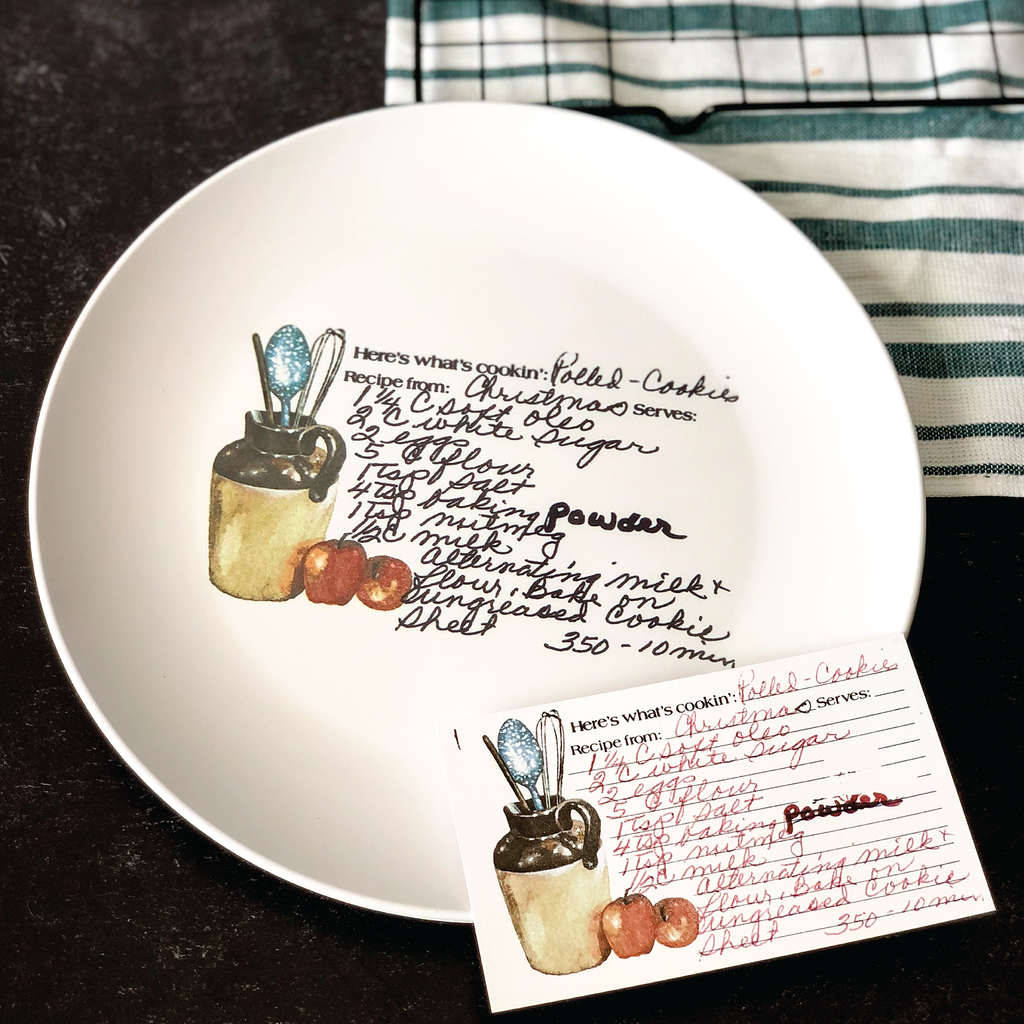 Here's what's cookin': Rolled-Cookies
Recipe from: Christmas Serves:
1 1/4 C soft oleo
2 C white sugar
2 eggs
5 C flour
1 tsp salt
4 tsp baking powder
1 tsp nutmeg
1/2 C milk
Alternating milk +
flour, Bake on
ungreased Cookie
Sheet 350-10 min
Here's what's cookin': Rolled-Cookies
Recipe from: Christmas Serves:
1 1/4 C soft oleo
2 C white sugar
2 eggs
5 C flour
1 tsp salt
4 tsp baking powder
1 tsp nutmeg
1/2 C milk
Alternating milk +
flour, Bake on
ungreased Cookie
Sheet 350-10 min